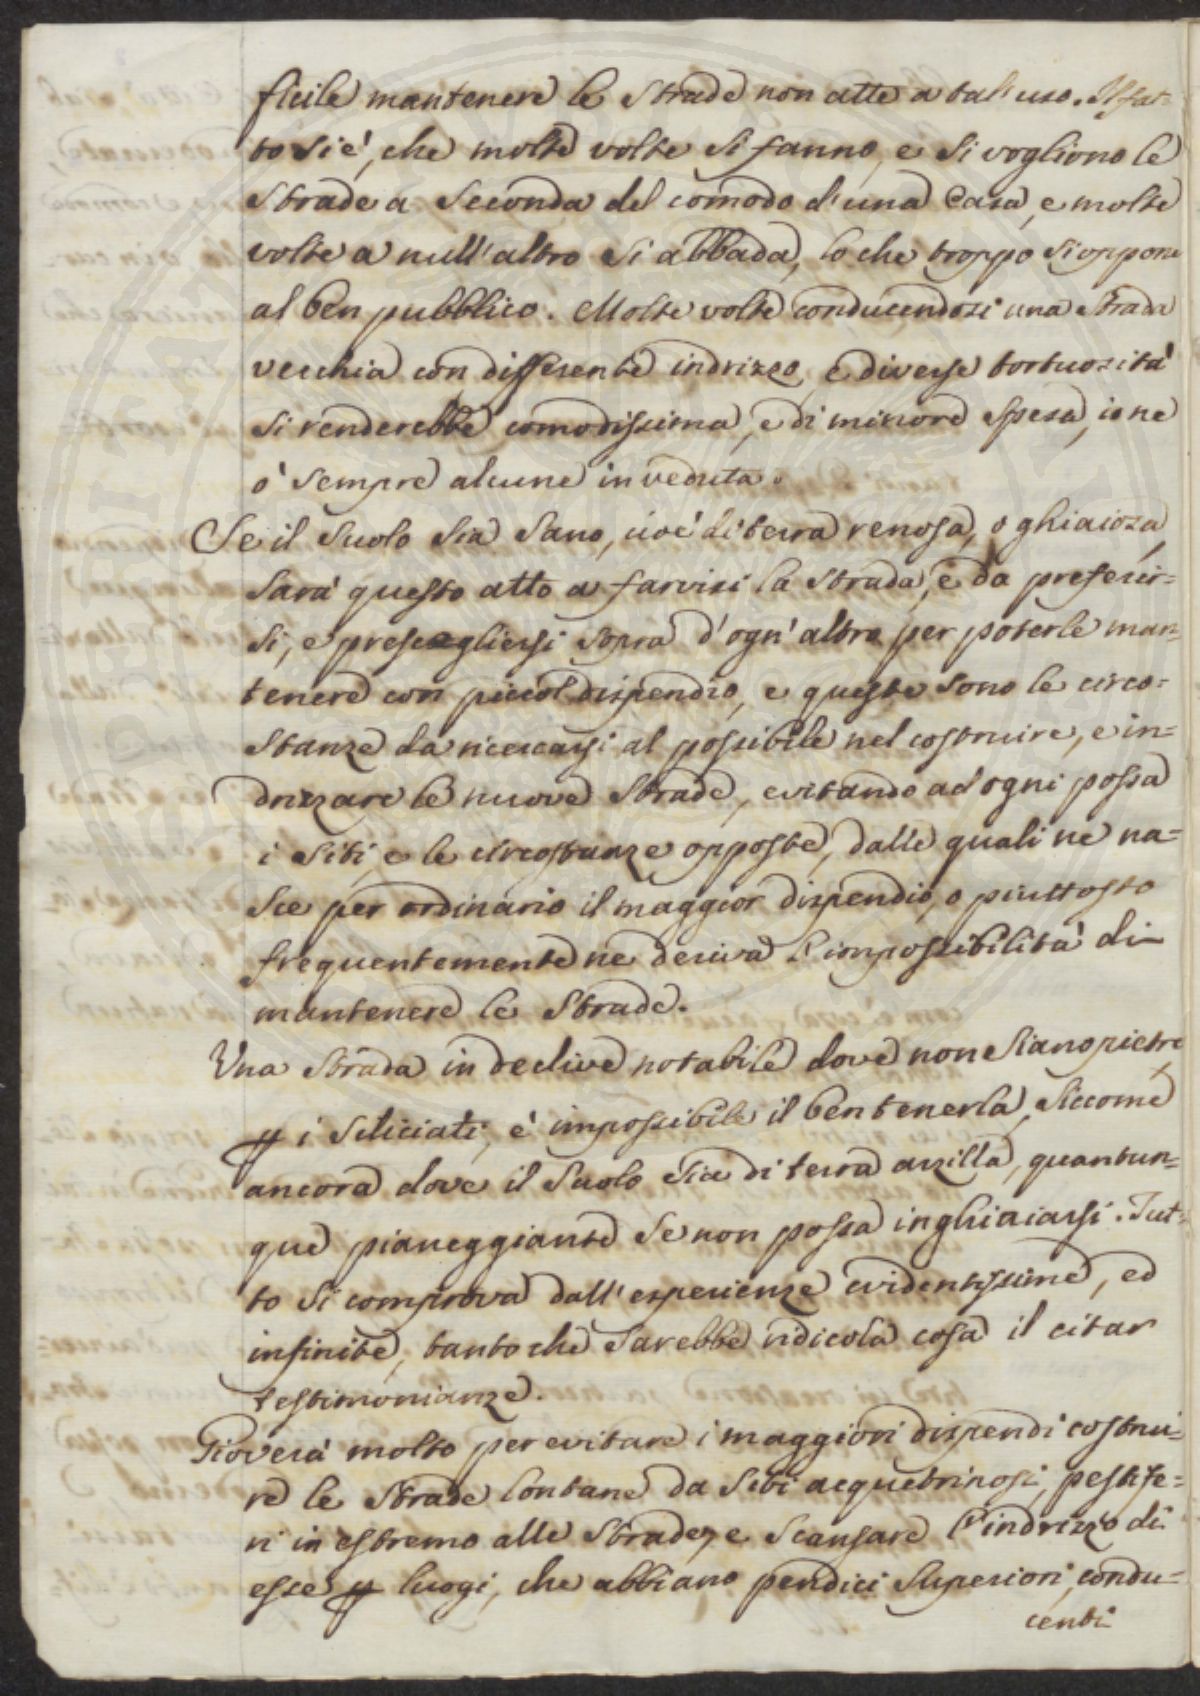 ficile mantenere le Strade non atte a tal'uso. Il fat-
to si è, che molte volte si fanno, e si vogliono le
Strade a seconda del comodo d'una Casa, e molte
volte a null'altro si abbada, lo che troppo si oppone
al ben pubblico. Molte volte conducendosi una Strada
vecchia con differente indrizzo, e diverse tortuosità
si renderebbe comodissima, e di minore spesa, io ne
ò sempre alcune in veduta.
Se il Suolo sia Sano, cioè di terra renosa, o ghiaiosa,
sarà questo atto a farvisi la Strada, e da preferir=
si, e presciegliersi sopra d'ogn'altro per poterle man-
tenere con piccol dispendio, e queste sono le circo=
stanze da ricercarsi al possibile nel costruire, e in=
drizzare le nuove Strade, evitando ad ogni possa
i siti, e le circostanze opposte, dalle quali ne na=
sce per ordinario il maggior dispendio, o piuttosto
frequentemente ne deriva l'impossibilità di
mantenere le Strade.
Una Strada in declive notabile dove non siano pietre
p i Siliciati, è impossibile il ben tenerla, siccome
ancora dove il Suolo sia di terra arzilla, quantun=
que pianeggiante se non possa inghiaiarsi. Tut=
to si comprova dall'esperienze evidentissime, ed
infinite, tanto che sarebbe ridicola cosa il citar
testimonianze.
Gioverà molto per evitare i maggiori dispendi costrui=
re le Strade lontane da siti acquetrinosi, pestife=
ri in estremo alle Strade, e scansare l'indrizzo di
esse p luogi, che abbiano pendici superiori, condu=
centi